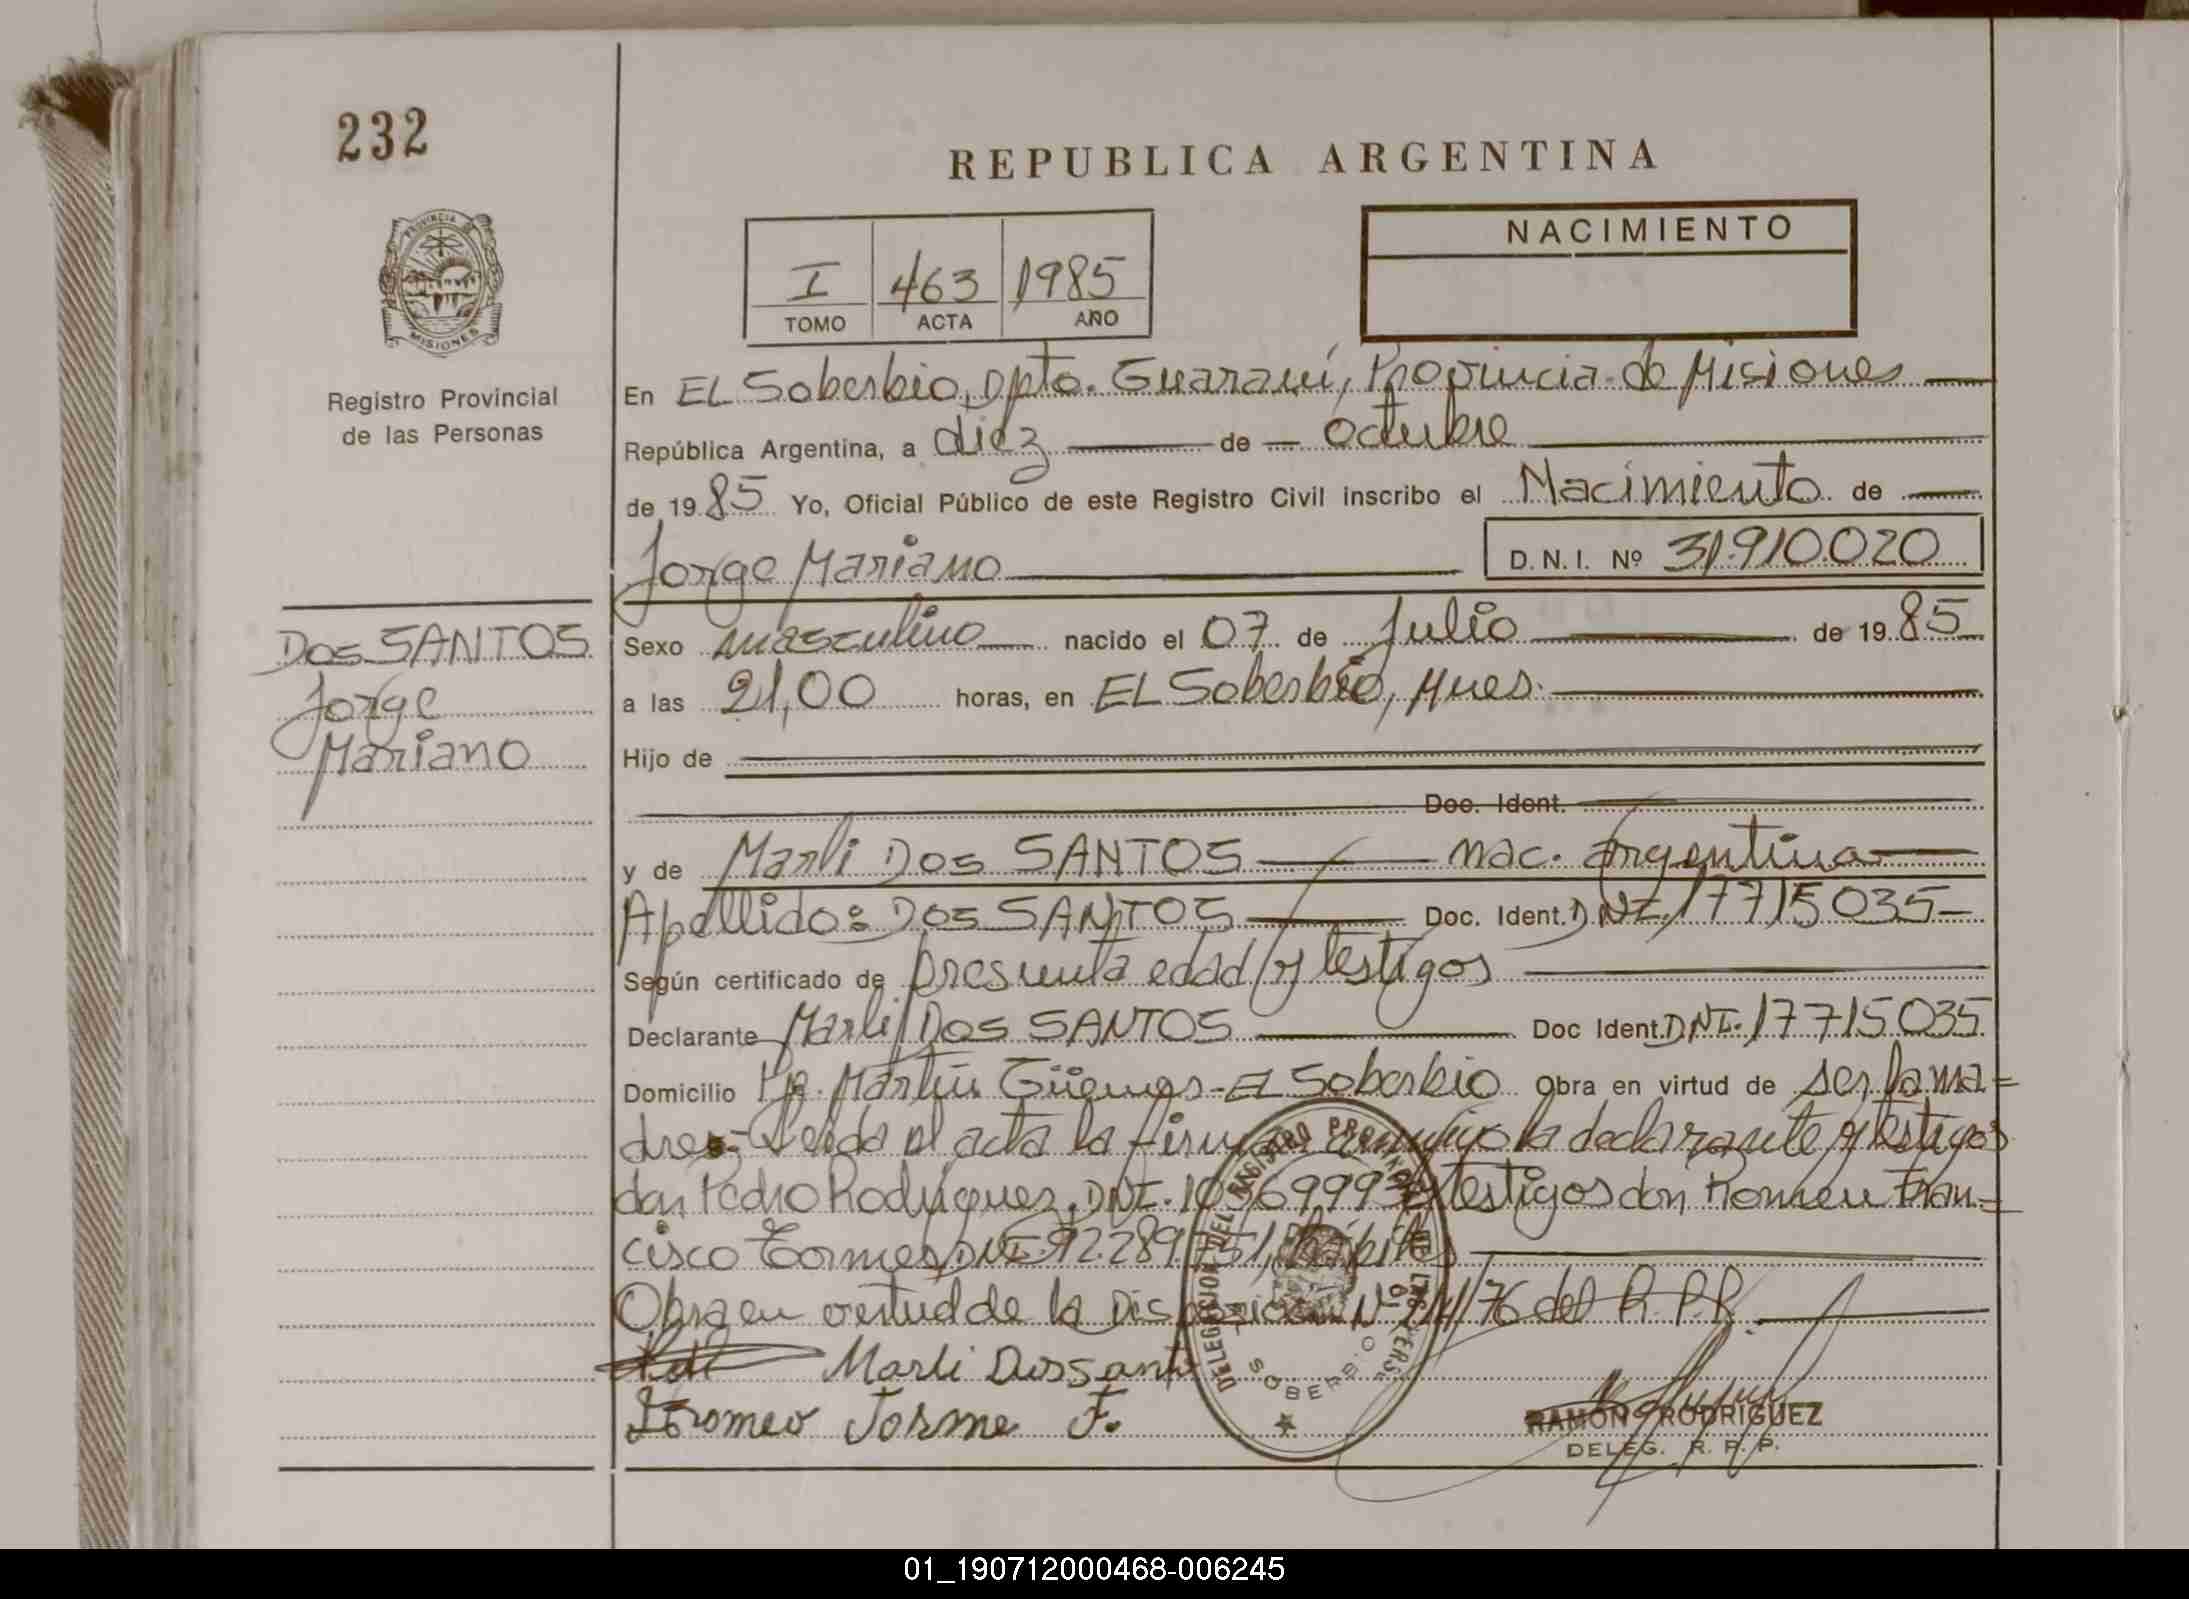 232
REPUBLICA ARGENTINA
NACIMIENTO
I 463 1985
TOMO ACTA AÑO
PROVINCIA DE MISIONES
Registro Provincial
de las Personas
En EL Soberbio, Dpto. Guaraní, Provincia de Misiones
República Argentina, a diez de octubre
de 1985 Yo, Oficial Público de este Registro Civil inscribo el Nacimiento de
Jorge Mariano D.N.I. Nº 31.910.020
DOS SANTOS
Jorge
Mariano
Sexo masculino nacido el 07 de Julio de 1985
a las 21,00 horas, en EL Soberbio, Mnes.
Hijo de
Doc. Ident.
y de Marli DOS SANTOS nac. argentina
Apellido: DOS SANTOS Doc. Ident. DNI. 17715035
Según certificado de presunta edad y testigos
Declarante Marli DOS SANTOS Doc Ident. DNI. 17715035
Domicilio Pje. Martín Güemes - EL Soberbio Obra en virtud de ser la ma=
dre.- Leída el acta la firman conmigo la declarante y testigos
don Pedro Rodriguez, DNI. testigos don Romeu Fran=
cisco Tormes DNI. 92.289.751, hábiles
Obra en virtud de la Disposición Nº /76 del R.P.P.
Marli Dos Sant
Iromeo Torme F.
DELEGACION DEL REGISTRO PROVINCIAL DE LAS PERS
SOBERBIO
RAMON RODRIGUEZ
DELEG. R. P. P.
01_190712000468-006245